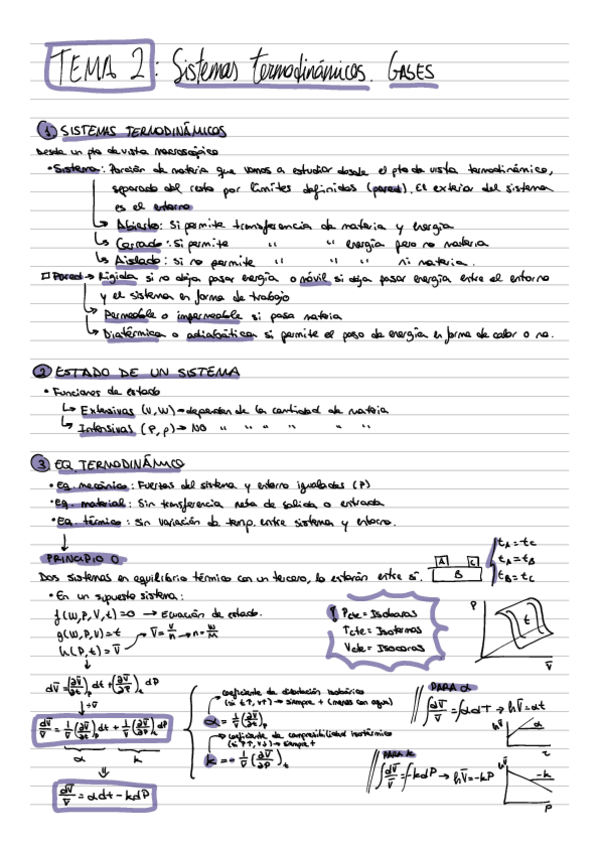 TEMA 2: Sistemas termodinámicos. GASES
1 SISTEMAS TERMODINÁMICOS
Desde un pto de vista macroscópico
• Sistema: Porción de materia que vamos a estudiar desde el pto de vista termodinámico,
separado del resto por límites definidos (pared). El exterior del sistema
es el entorno
↳ Abierto: Si permite transferencia de materia y energía
↳ Cerrado: Si permite " " energía pero no materia
↳ Aislado: si no permite " " " ni materia.
□ Pared → Rígida si no deja pasar energía o móvil si deja pasar energía entre el entorno
y el sistema en forma de trabajo
↳ Permeable o impermeable si pasa materia
↳ Diatérmica o adiabática si permite el paso de energía en forma de calor o no.
2 ESTADO DE UN SISTEMA
• Funciones de estado
↳ Extensivas (V, W) → dependen de la cantidad de materia
↳ Intensivas (P, ρ) → NO " " " " " "
3 EQ. TERMODINÁMICO
• Eq. mecánico: Fuerzas del sistema y entorno igualadas (P)
• Eq. material: Sin transferencia neta de salida o entrada
• Eq. térmico: Sin variación de temp. entre sistema y entorno.
PRINCIPIO 0
Dos sistemas en equilibrio térmico con un tercero, lo estarán entre sí.
A C
B
tA = tC
tA = tB
tB = tC
• En un supuesto sistema:
f(W, P, V, t) = 0 → Ecuación de estado.
g(W, P, V) = t
h(P, t) = V̄
V̄ = V/n → n = W/M
Pcte = Isobaras
Tcte = Isotermas
Vcte = Isocoras
P
t
V̄
dV̄ = (∂V̄/∂t)P dt + (∂V̄/∂P)t dP
↓ ÷V̄
dV̄/V̄ = 1/V̄ (∂V̄/∂t)P dt + 1/V̄ (∂V̄/∂P)t dP
α k
dV̄/V̄ = αdt - kdP
coeficiente de dilatación isobárico
(si t↑, V↑) → siempre + (menos con agua)
α = 1/V̄ (∂V̄/∂t)P
coeficiente de compresibilidad isotérmico
(si P↑, V↓) → siempre +
k = - 1/V̄ (∂V̄/∂P)t
PARA α
∫dV̄/V̄ = ∫αdT → ln V̄ = αt
ln V̄
α
PARA k
∫dV̄/V̄ = ∫-kdP → ln V̄ = -kP
ln V̄
-k
P